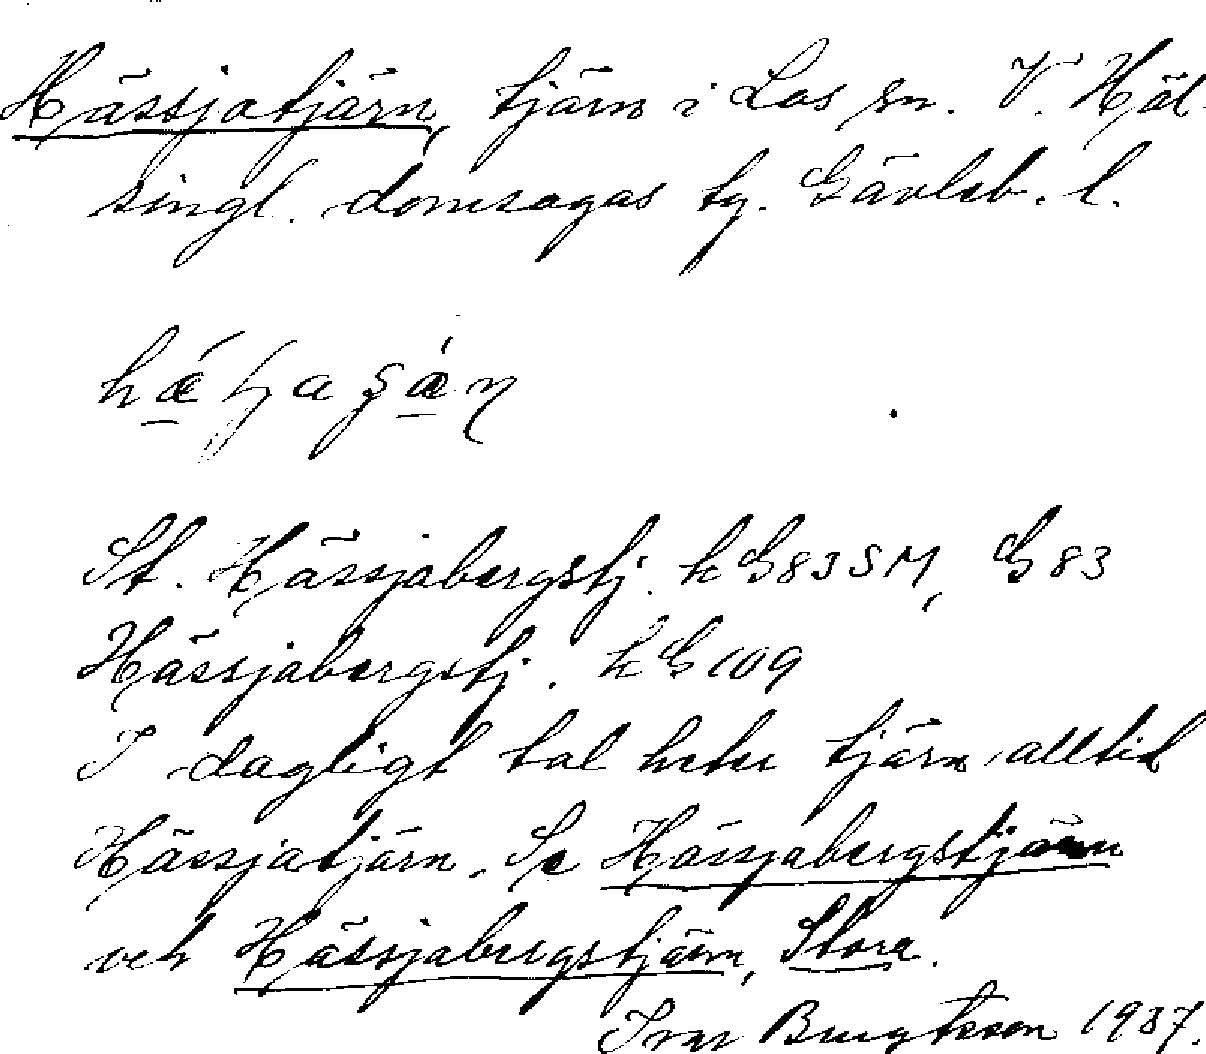 Hässjatjärn, tjärn i Los sn. V. Häl-
singl. domsagas tg. Gävleb. l.
St. Hässjabergstj. k G83SM, G83
Hässjabergstj. k G109
I dagligt tal heter tjärn alltid
Hässjatjärn. Se Hässjabergstjärn
och Hässjabergstjärn, Stora.
Ivar Bengtsson 1937.